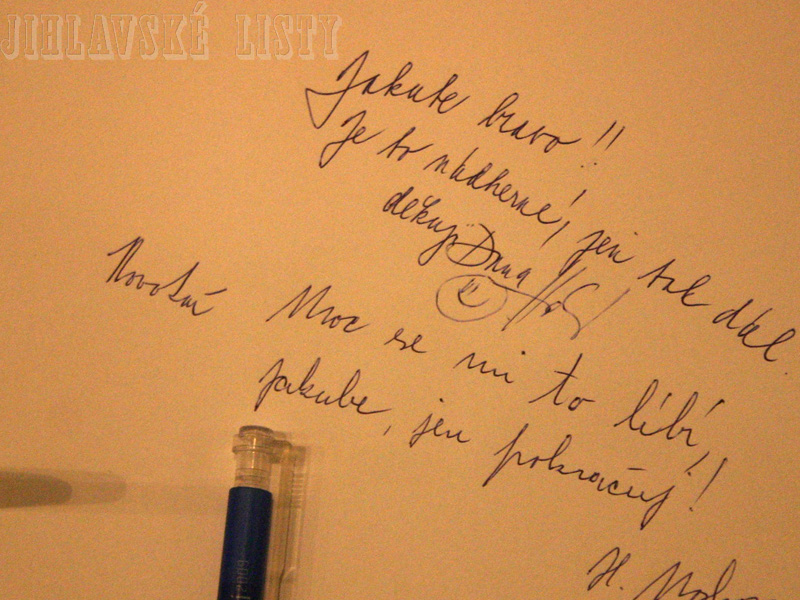 JIHLAVSKÉ LISTY
Jakube bravo!!
Je to nádherné, jen tak dál.
děkuji Dana
Novotná
Moc se mi to líbí,
Jakube, jen pokračuj!
H.